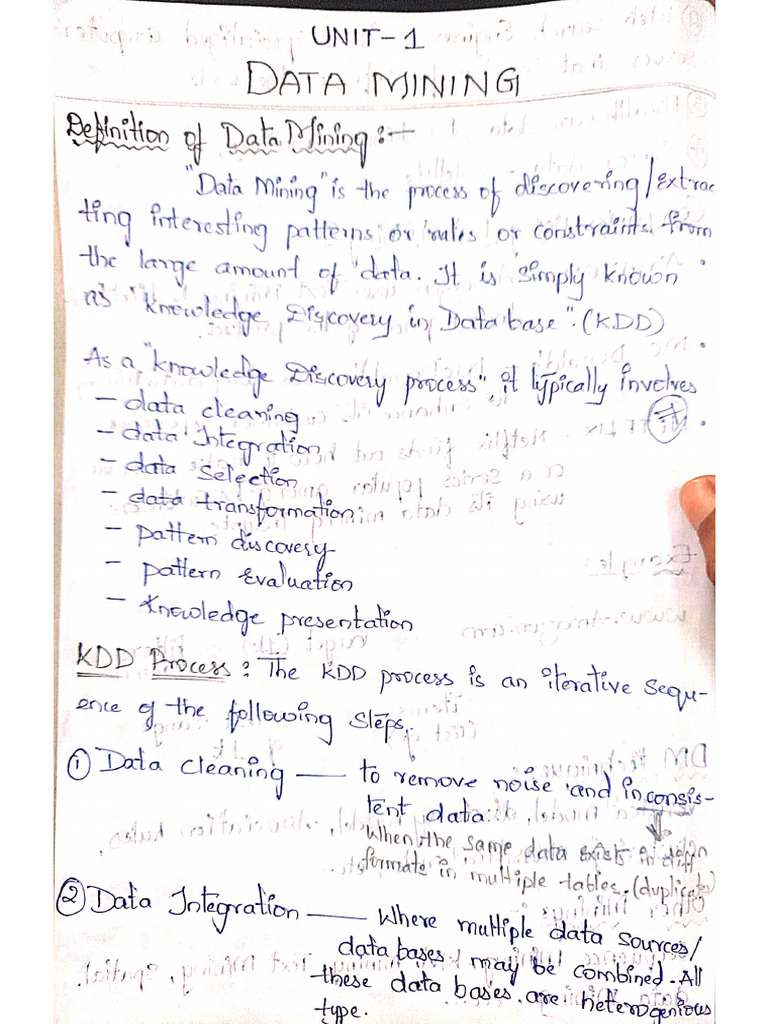 UNIT-1
DATA MINING
Definition of Data Mining :-
"Data Mining" is the process of discovering/extrac
ting interesting patterns or rules or constraints from
the large amount of data. It is simply known
as "Knowledge Discovery in Database". (KDD)
As a "Knowledge Discovery process", it typically involves
- data cleaning
- data Integration
- data Selection
- data transformation
- pattern discovery
- pattern Evaluation
- Knowledge presentation
KDD Process: The KDD process is an iterative sequ-
ence of the following steps.
① Data cleaning — to remove noise and inconsis-
tent data.
When the same data exists in diff
formats in multiple tables. (duplicate)
② Data Integration — Where multiple data sources/
data bases may be combined. All
these data bases are heterogenious
type.